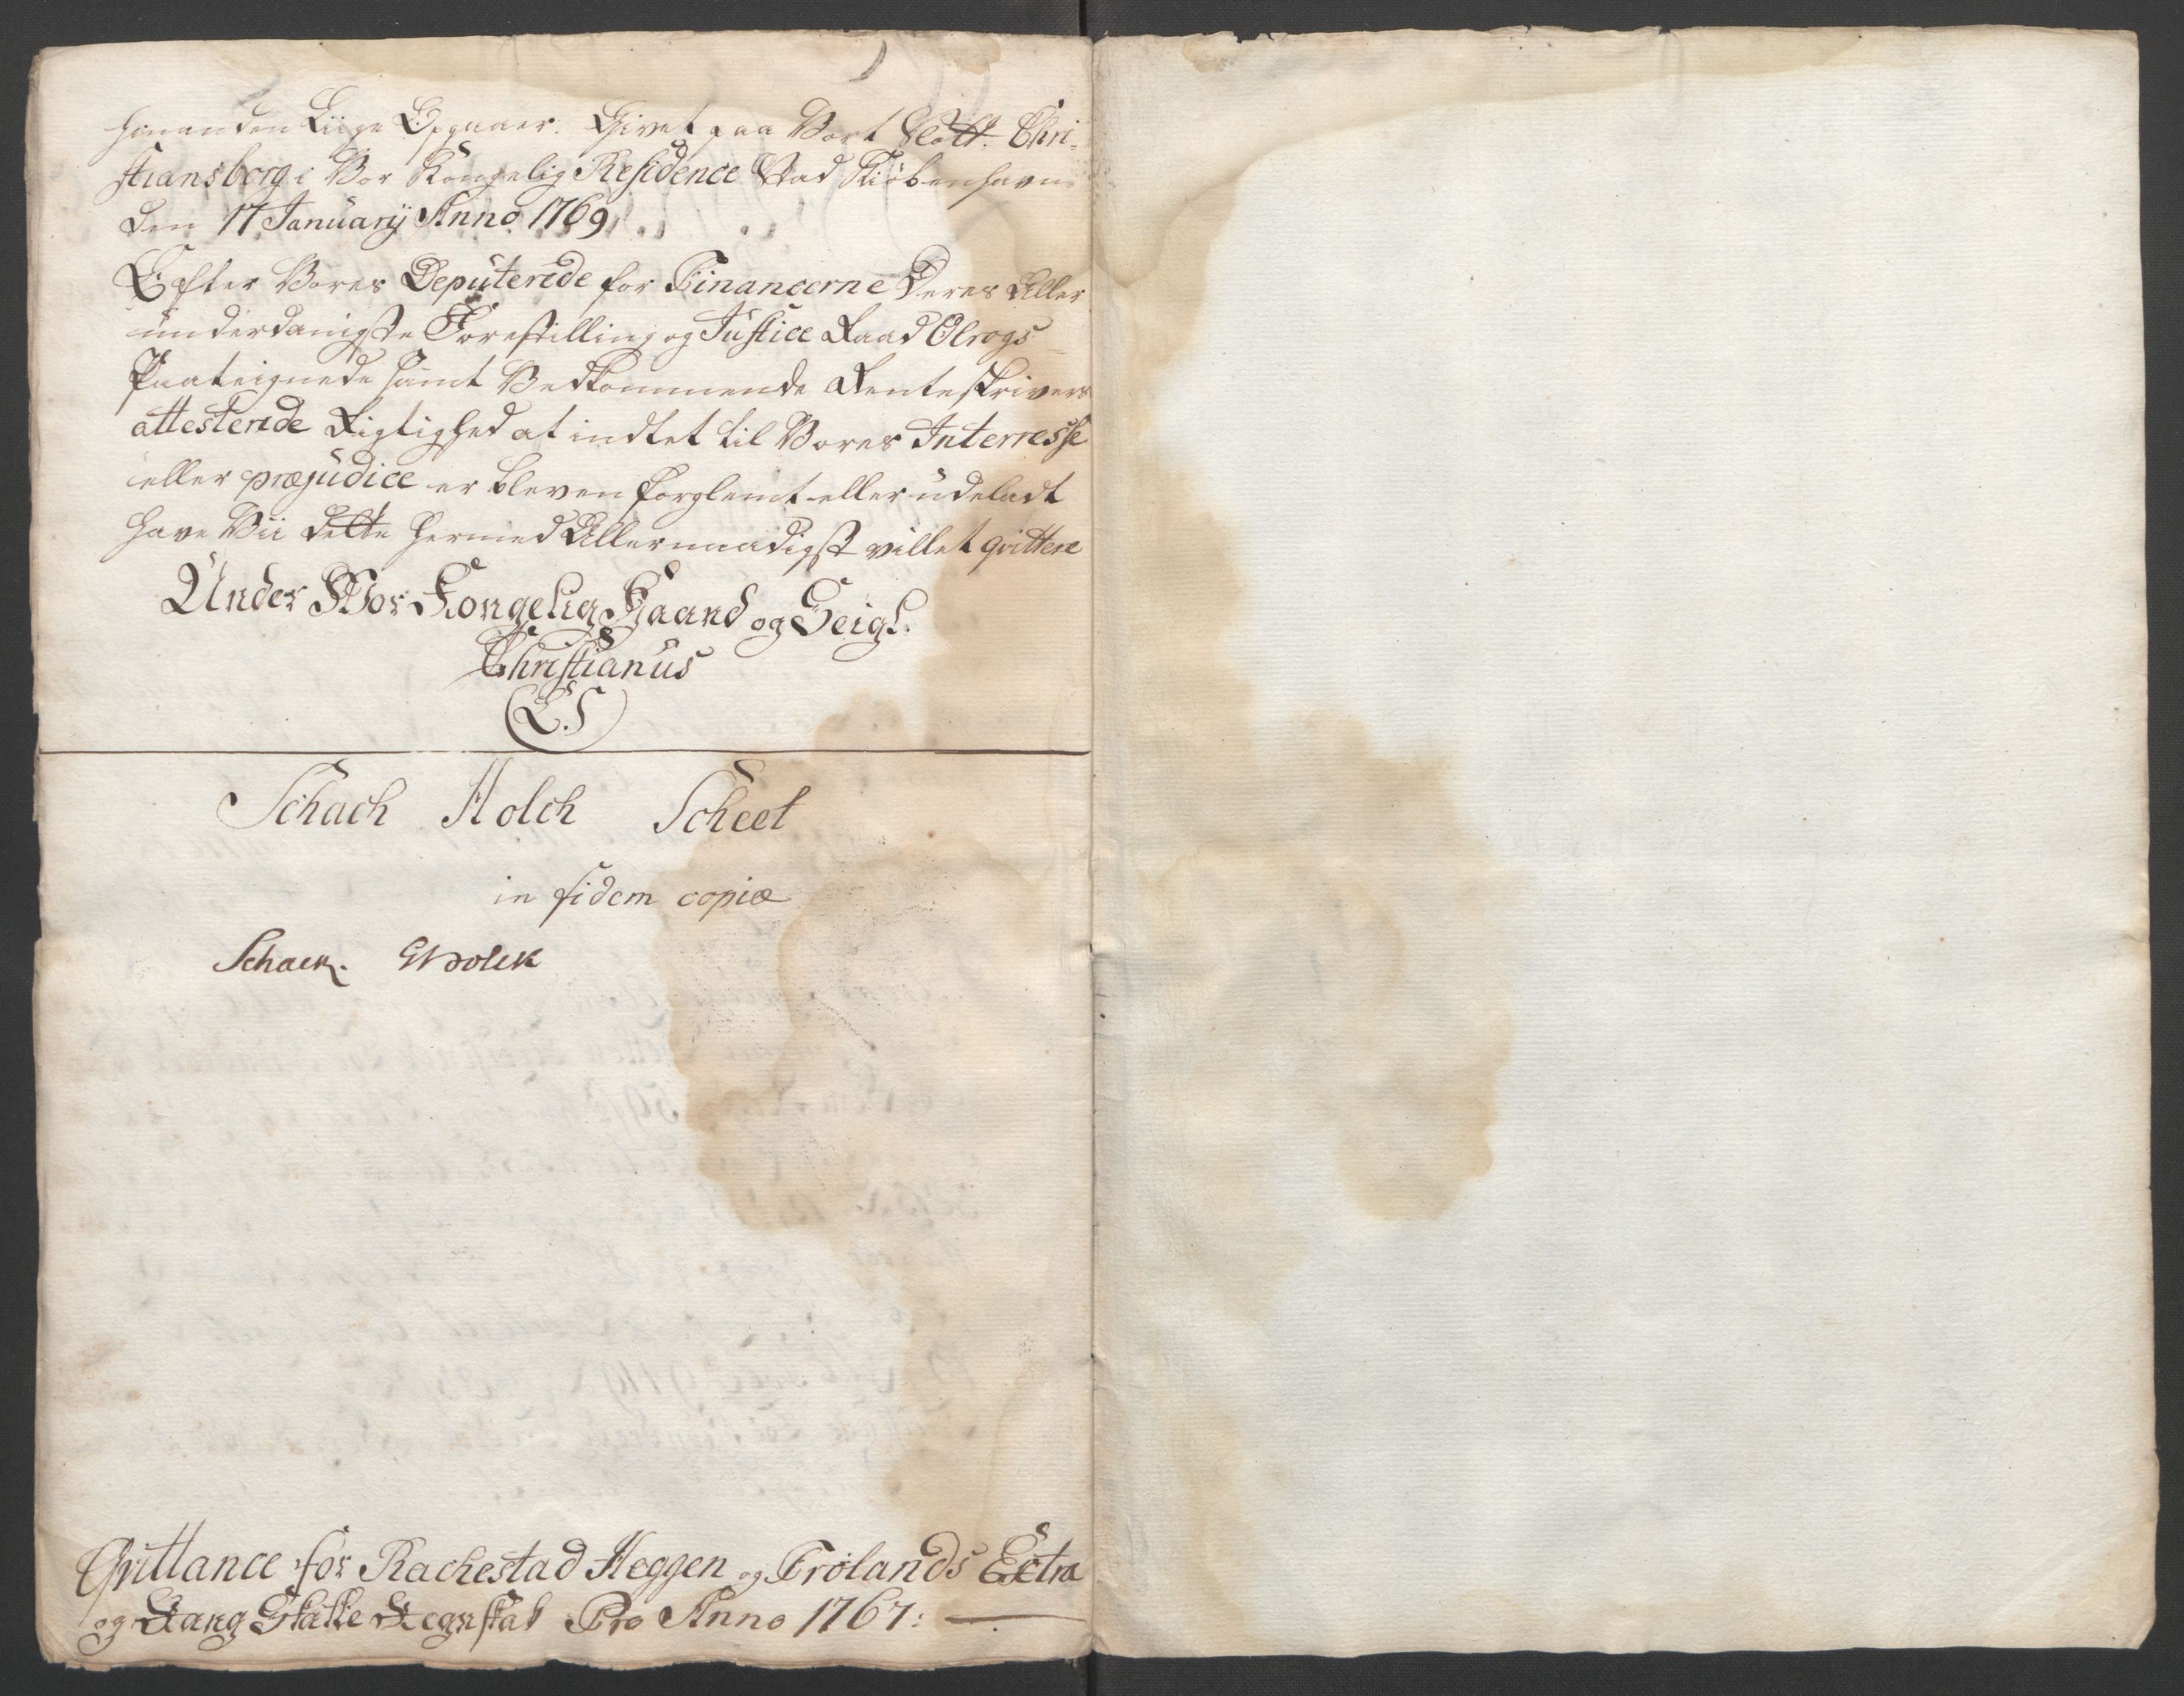 hinanden Liige Opgaaer. Givet paa Vort Slott. Chri-
stiansborg i Vor Kongelig Residence Stad Kiöbenhavn
den 17 Januarÿ Anno 1769
Efter Vores Deputerede for Financerne Deres Aller
underdanigste Forestilling og Justice Raad Olrogs
Paateignede samt Vedkommende Renteskrivers
attesterede Rigtighed at indtet til Vores Interresse
eller præjudice er bleven forglemt eller udeladt
have Vii dette hermed Allernaadigst villet qvittere
Under Vor Kongelig Haand og Seigl.
Christianus
L.S
Schach Holch Scheel
in fidem copiæ
Schack.
Qvittance for Rachestad Heggen og Frölands Extra
og Rang Skatte Regnskab Pro Anno 1767: